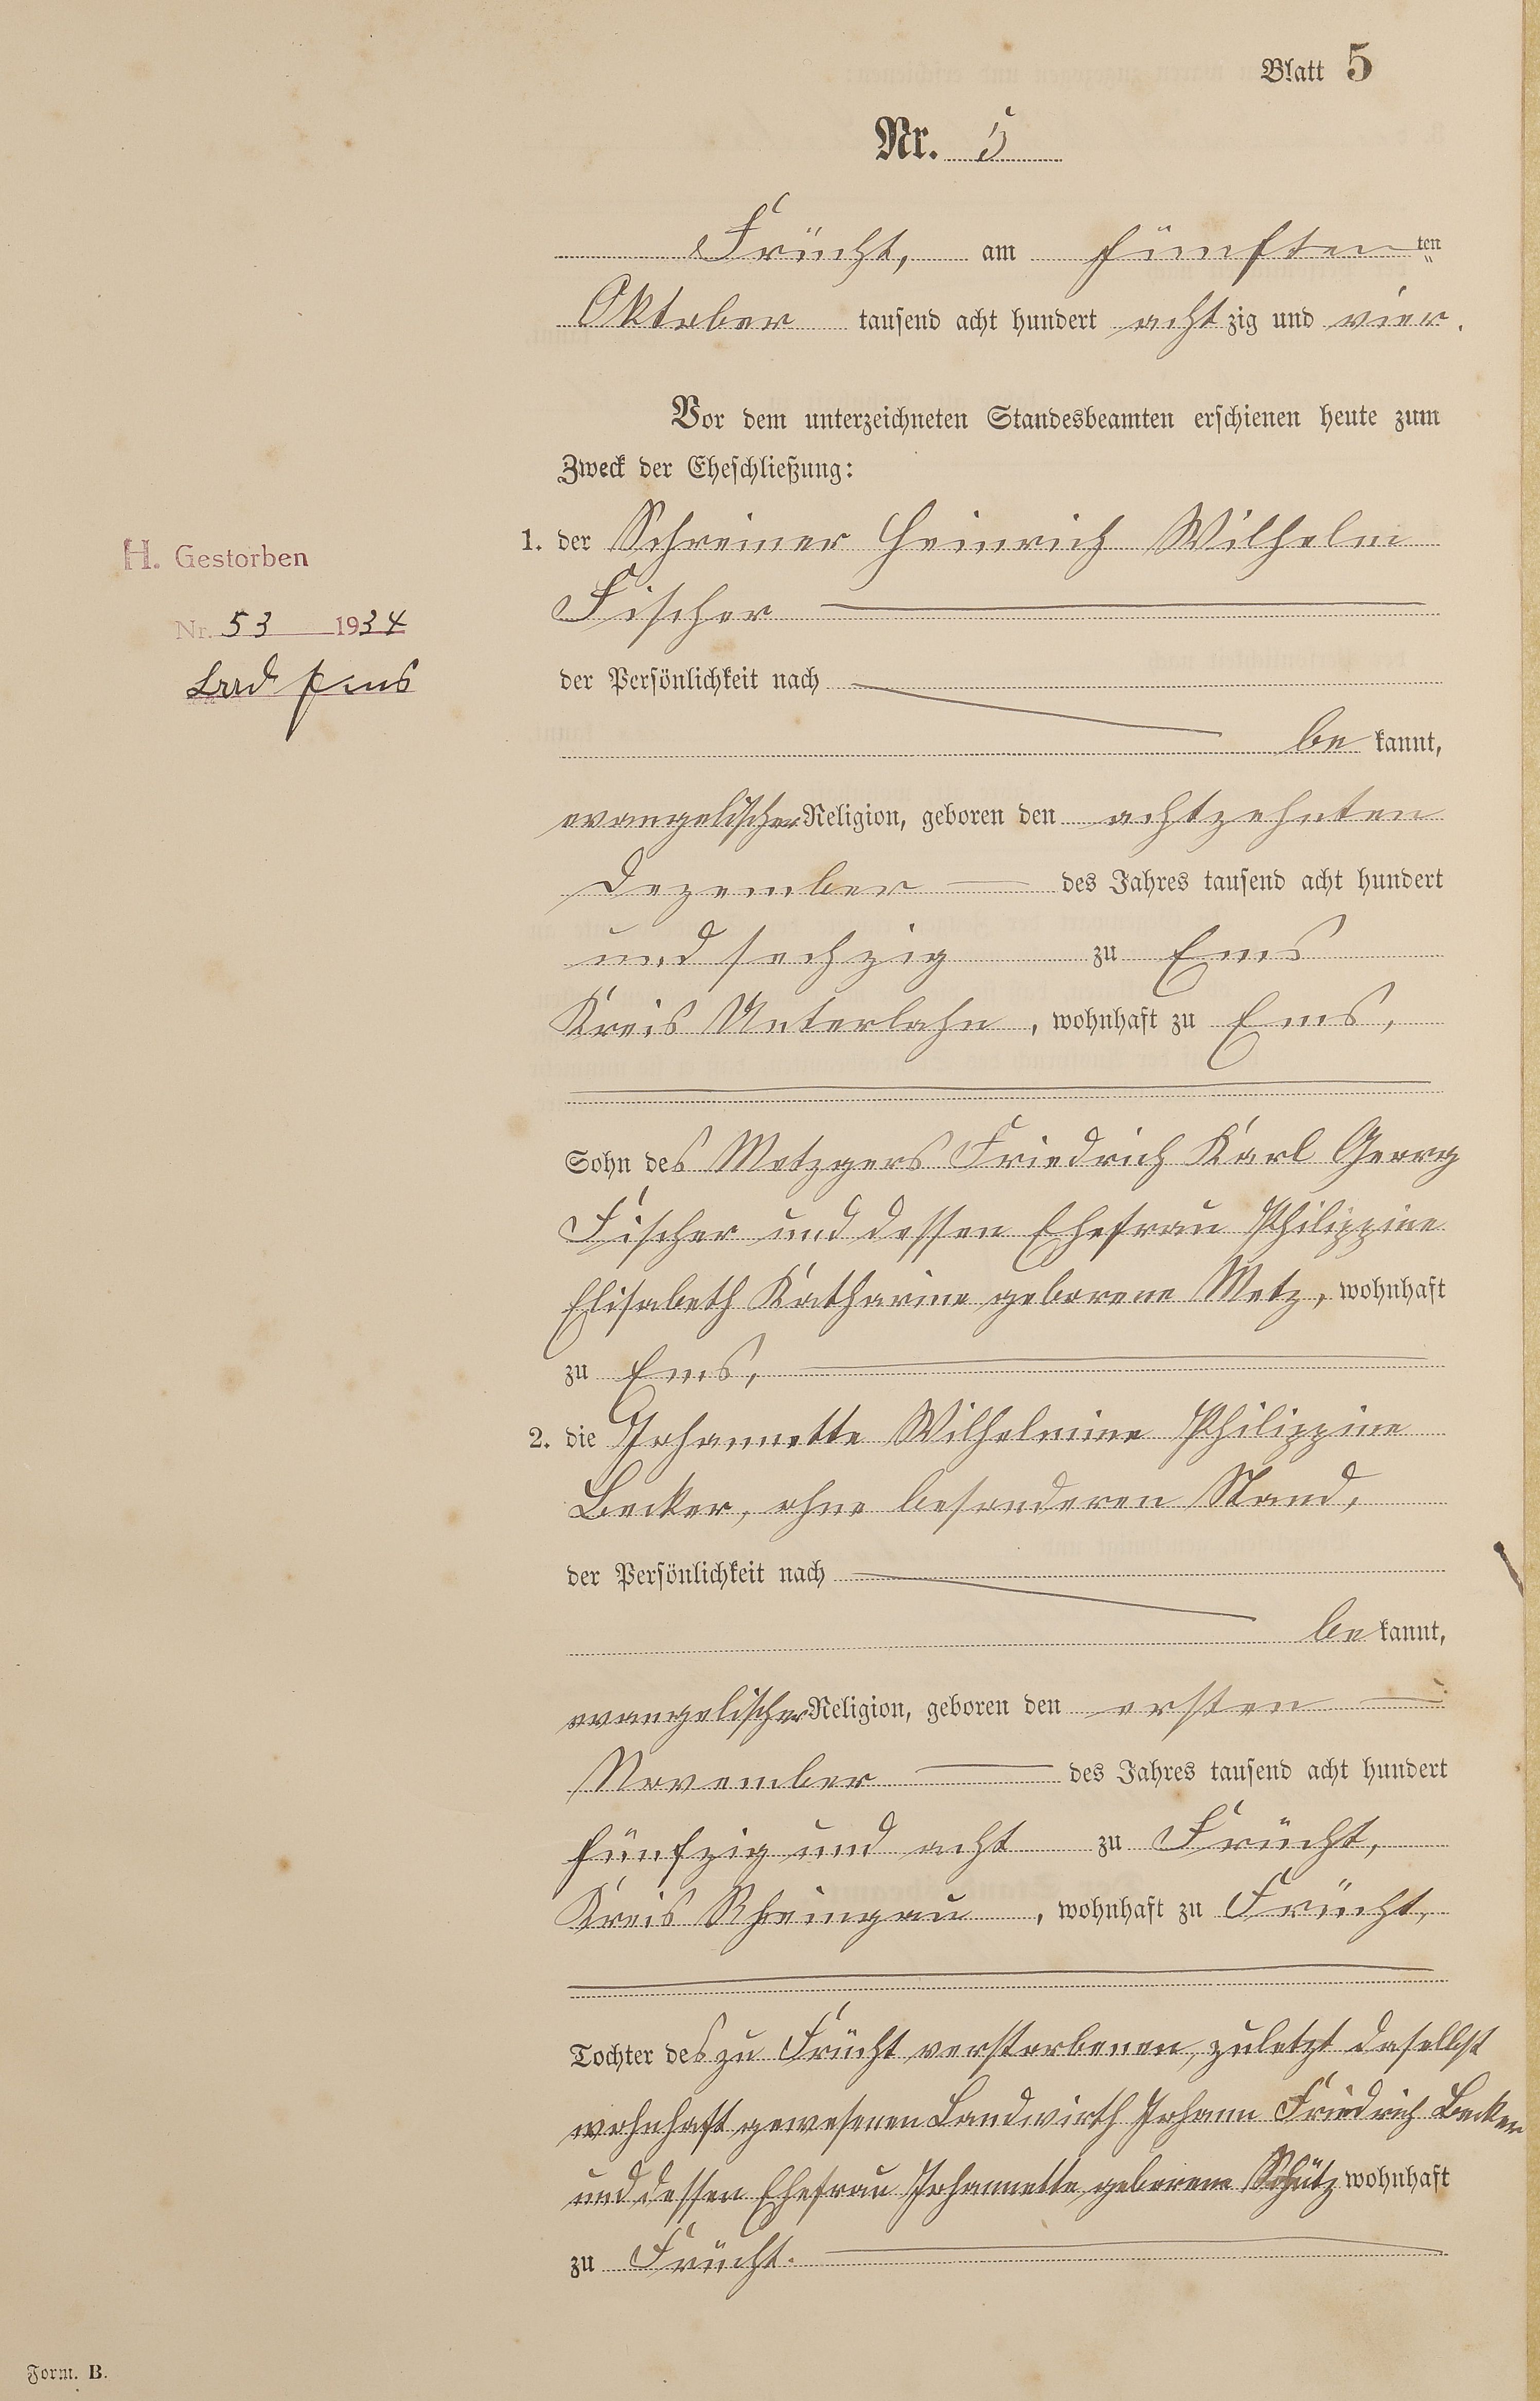 Blatt 5
Nr. 5
Frücht, am fünften ten
Oktober tausend acht hundert achtzig und vier.
Vor dem unterzeichneten Standesbeamten erschienen heute zum
Zweck der Eheschließung:
1. der Schreiner Heinrich Wilhelm
Fischer
der Persönlichkeit nach
be kannt,
evangelischer Religion, geboren den achtzehnten
Dezember des Jahres tausend acht hundert
und sechzig zu Ems
Kreis Unterlahn, wohnhaft zu Ems,
Sohn des Metzgers Friedrich Karl Georg
Fischer und dessen Ehefrau Philippine
Elisabeth Katharine geborene Metz, wohnhaft
zu Ems,
2. die Johannette Wilhelmine Philippine
Becker, ohne besonderen Stand,
der Persönlichkeit nach
be kannt,
evangelischer Religion, geboren den ersten
November des Jahres tausend acht hundert
fünfzig und acht zu Frücht,
Kreis Rheingau, wohnhaft zu Frücht,
Tochter des zu Frücht verstorbenen, zuletzt daselbst
wohnhaft gewesenen Landwirth Johann Friedrich Becker
und dessen Ehefrau Johannette geborene Schütz wohnhaft
zu Frücht.
H. Gestorben
Nr. 53 1934
Bad Ems
Form. B.